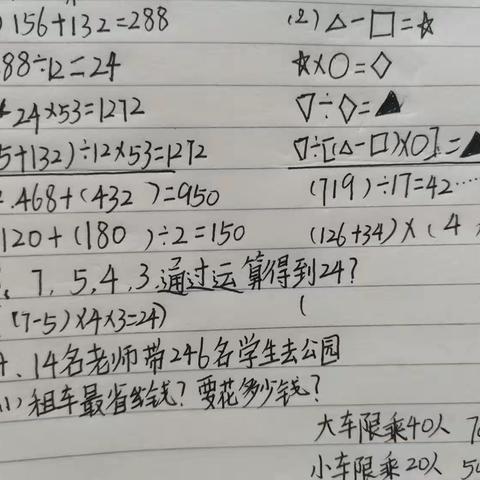 156+132=288 (2) △-□=☆
88÷12=24 ☆×○=◇
24×53=1272 ▽÷◇=▲
5+132)÷12×53=1272 ▽÷[(△-□)×○]=▲
.468+(432 )=950 (719)÷17=42……
120+(180 )÷2=150 (126+34)×(4
7, 5, 4, 3, 通过运算得到24?
(7-5)×4×3=24) (
、14名老师带246名学生去公园
(1) 租车最省钱? 要花多少钱?
大车限乘40人
小车限乘20人